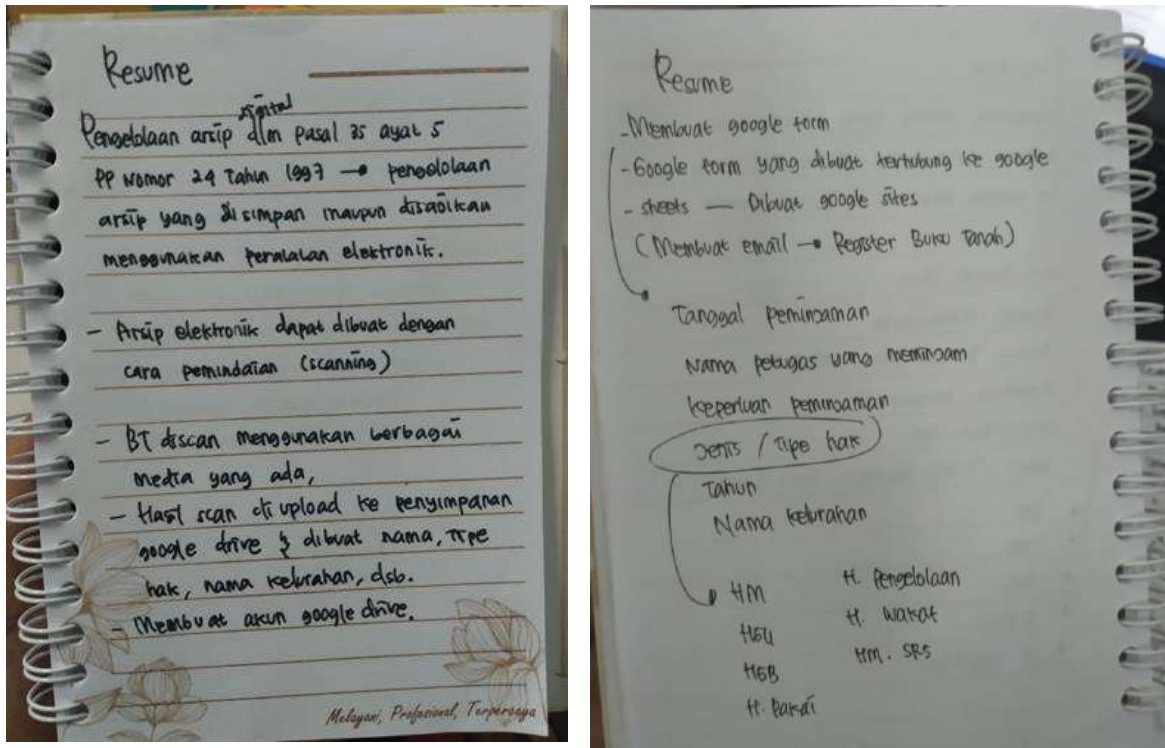 Resume
Pengelolaan arsip digital dlm pasal 35 ayat 5
PP Nomor 24 Tahun 1997 → pengelolaan
arsip yang disimpan maupun disajikan
menggunakan peralatan elektronik.
- Arsip elektronik dapat dibuat dengan
cara pemindaian (scanning)
- BT discan menggunakan berbagai
media yang ada,
- Hasil scan di upload ke penyimpanan
google drive & dibuat nama, Tipe
hak, nama kelurahan, dsb.
- Membuat akun google drive.
Melayani, Profesional, Terpercaya
Resume
- Membuat google form
- Google form yang dibuat terhubung ke google
- sheets — Dibuat google sites
(Membuat email → Register Buku Tanah)
Tanggal peminjaman
Nama petugas yang meminjam
Keperluan peminjaman
Jenis / Tipe hak
Tahun
Nama kelurahan
HM
HGU
HGB
H. Pakai
H. Pengelolaan
H. Wakaf
HM. SRS